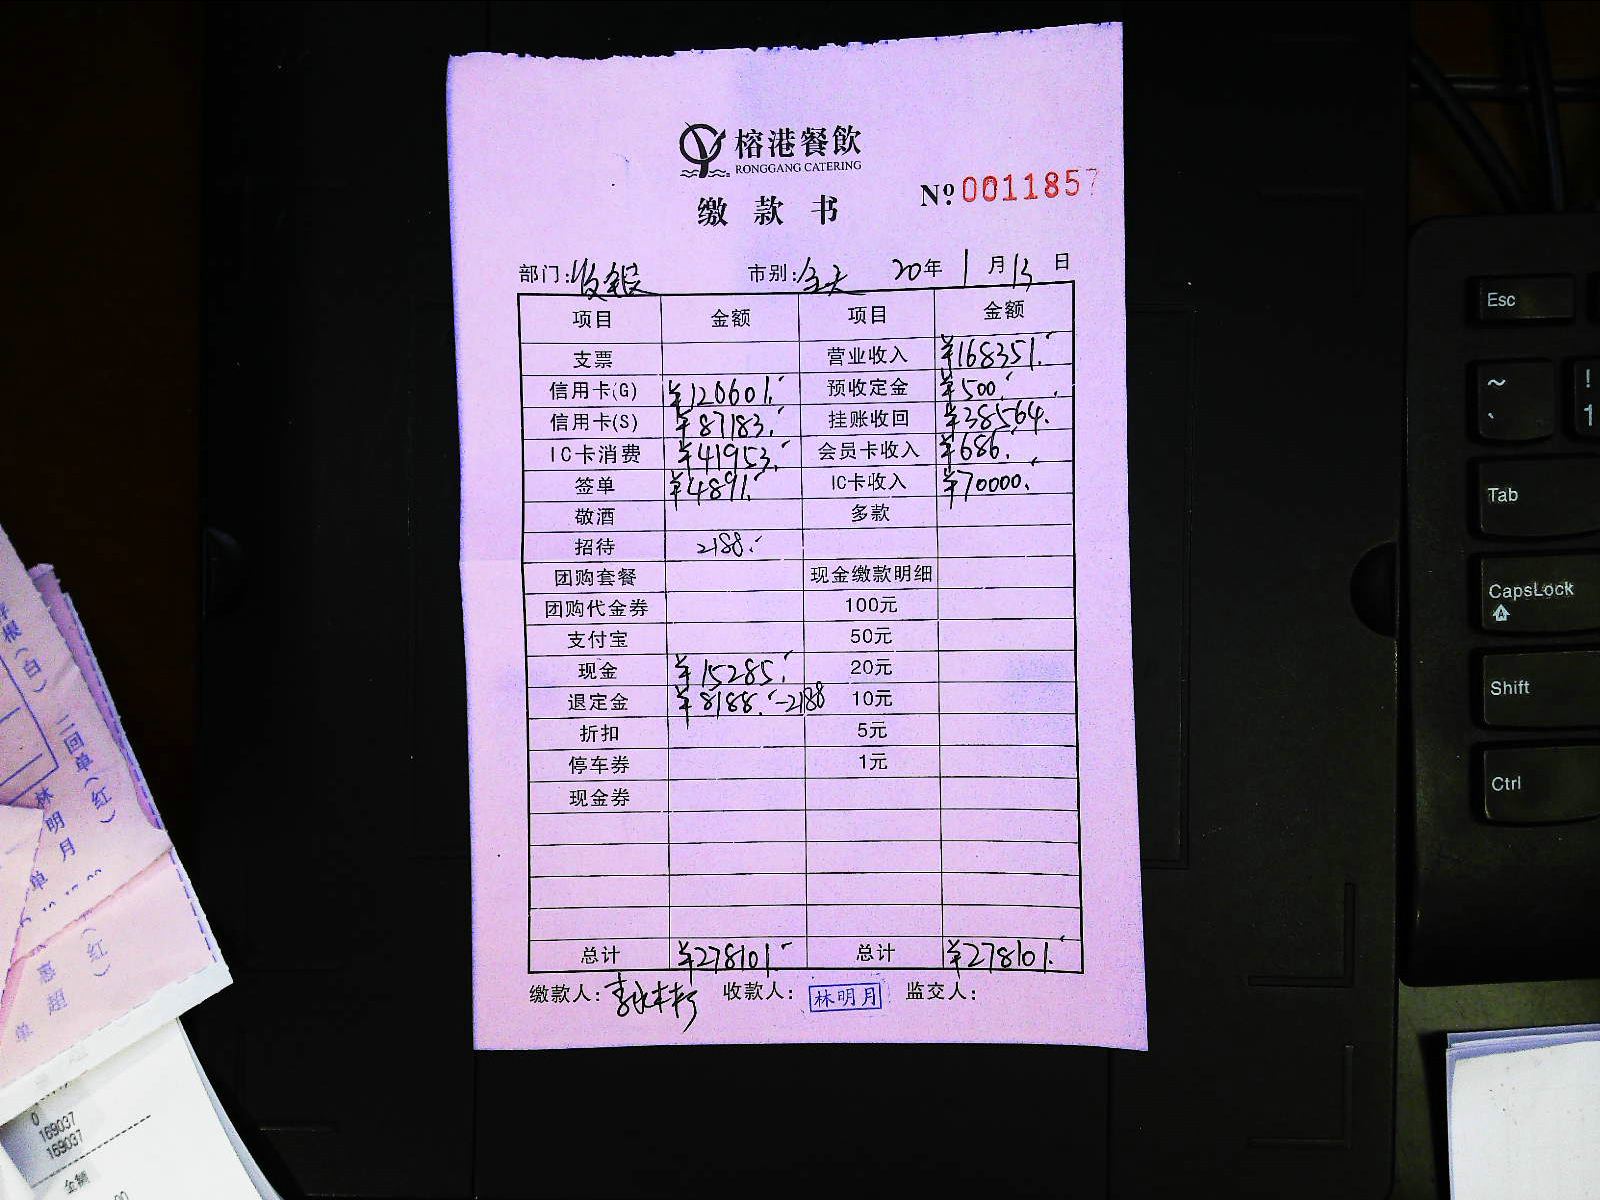 榕港餐飲
RONGGANG CATERING
缴款书
Nº 0011857
部门:收银 市别:全天 20年1月13日
项目 金额 项目 金额
支票 营业收入 ¥168351.-
信用卡(G) ¥120601.- 预收定金 ¥500.-
信用卡(S) ¥87183.- 挂账收回 ¥38564.
IC卡消费 ¥41953.- 会员卡收入 ¥686.-
签单 ¥4891.- IC卡收入 ¥70000.-
敬酒 多款
招待 2188.-
团购套餐 现金缴款明细
团购代金券 100元
支付宝 50元
现金 ¥15285.- 20元
退定金 ¥8188.--2188 10元
折扣 5元
停车券 1元
现金券
总计 ¥278101.- 总计 ¥278101.-
缴款人: 收款人:林明月 监交人:
根(白)
二回单(红)
林明月
单
(红)
惠超
单
0
169037
169037
金额
Esc
~
`
!
1
Tab
CapsLock
Shift
Ctrl